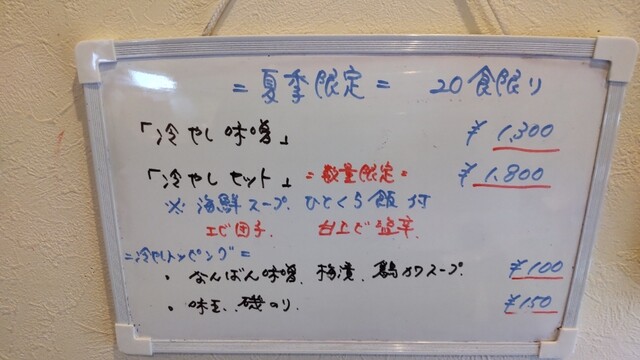 =夏季限定= 20食限り
「冷やし味噌」 ¥1,300
「冷やしセット」 =数量限定= ¥1,800
※海鮮スープ、ひとくち飯付
エビ団子 白エビ塩辛
=冷やしトッピング=
・なんばん味噌、梅漬、鶏カワスープ ¥100
・味玉、磯のり、 ¥150